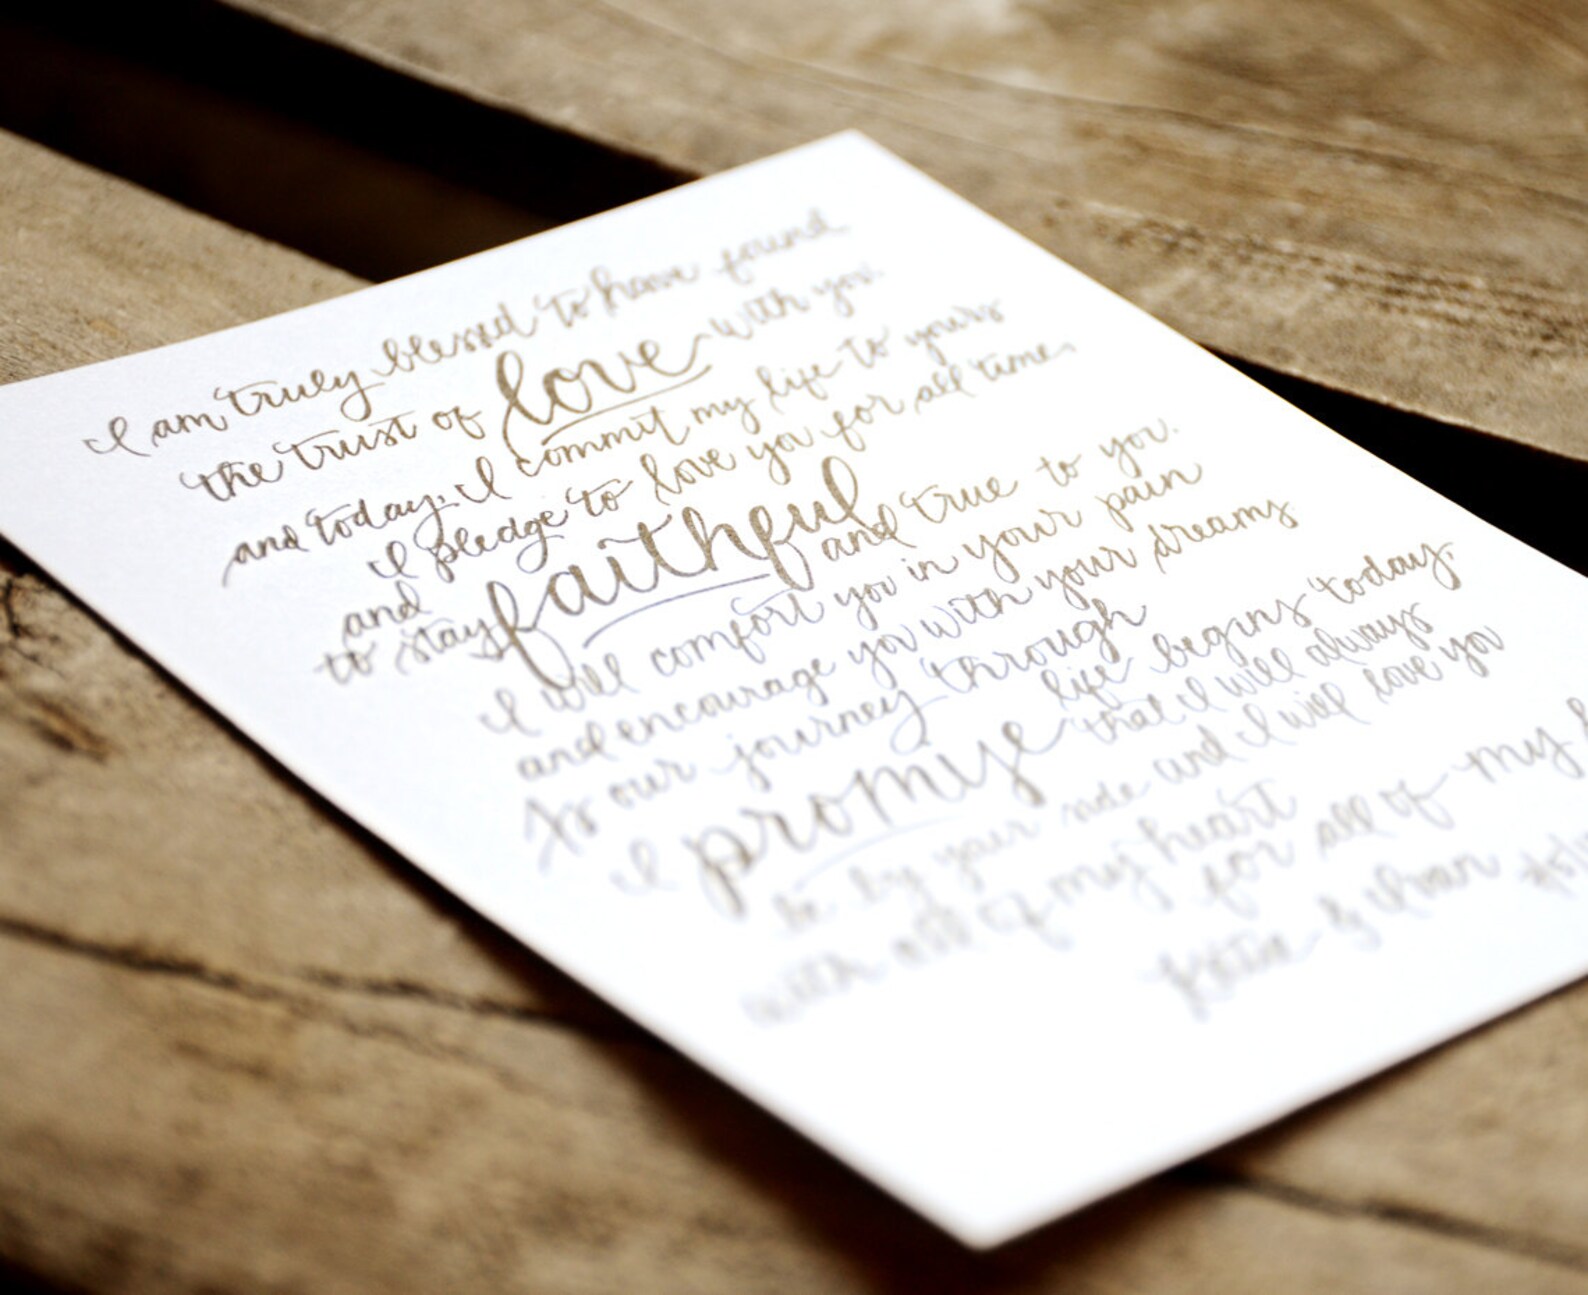 I am truly blessed to have found
the trust of love with you.
and today, I commit my life to yours
I pledge to love you for all time.
and
to stay faithful and true to you.
I will comfort you in your pain
and encourage you with your dreams
As our journey through
life begins today,
I promise that I will always
be by your side and I will love you
with all of my heart
for all of my
Katie &